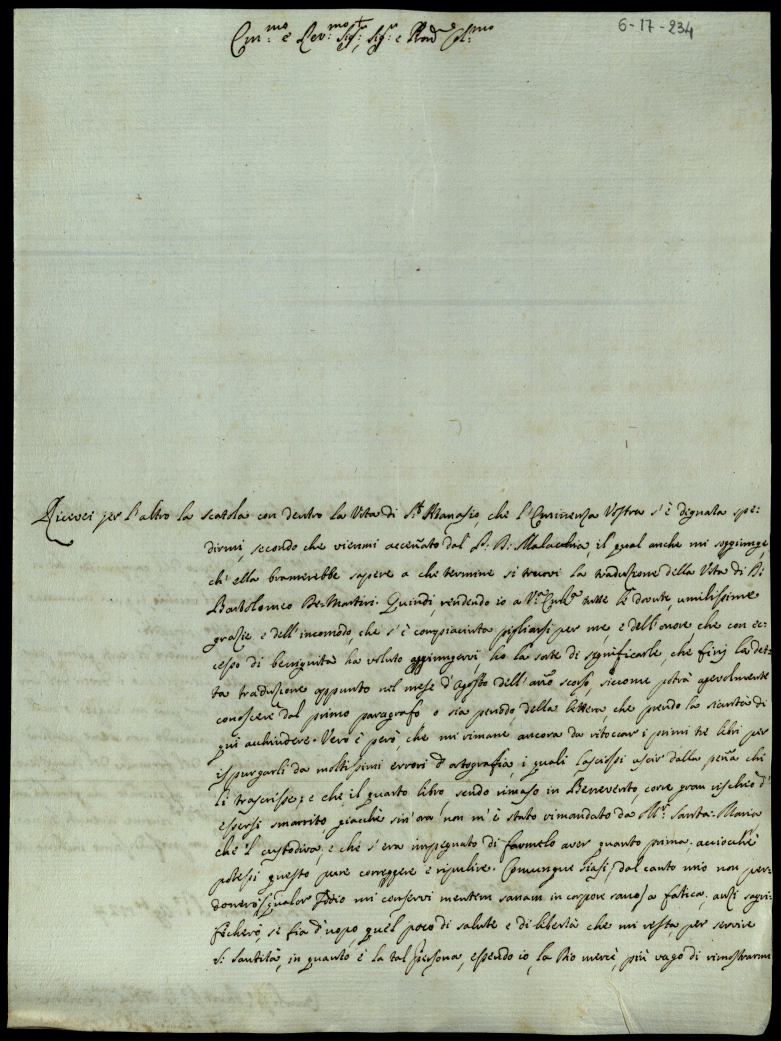 6-17-234
Em:mo e Rev:mo Sig:r, Sig:r e Pad:
Ricevei per l'altro la scatola con dentro la Vita di S:t Atanasio, che l'Eminenza Vostra s'è dignata spe-
dirmi, secondo che viemmi accennato dal P: B: Malachia, il qual anche mi soggiunge,
ch'ella bramerebbe sapere a che termine si truovi la traduzione della Vita di B:
Bartolomeo De-Martiri. Quindi, rendendo io a V:a tutte le dovute, umilissime
grazie e dell'incomodo, che s'è compiaciuta pigliarsi per me, e dell'onore che con ec-
cesso di benignità ha voluto aggiungervi, ho la sorte di significarle, che finij la det-
ta traduzione appunto nel mese d'Agosto dell'anno scorso, siccome potrà agevolmente
conoscere dal primo paragrafo, o sia periodo, della lettera, che prendo la sicurtà di
qui acchiudere. Vero è però, che mi rimane ancora da ritoccar i primi tre libri per
ispurgarli da moltissimi errori d'ortografia, i quali lascissi uscir dalla penna chi
li trascrisse; e che il quarto libro sendo rimaso in Benevento, corre gran rischio d'
essersi smarrito, giacchè sin'ora non m'è stato rimandato da M:r Santa-Maria
che'l custodiva, e che s'era impegnato di farmelo aver quanto prima, acciocchè
potessi questo pure correggere e ripulire. Comunque siasi, dal canto mio non per-
donerò (qualor Iddio mi conservi mentem sanam in corpore sano) a fatica, anzi sagri-
ficherò, se fia d'uopo, quel poco di salute e di libertà che mi resta, per servire
S: Santità, in quanto è la tal persona, essendo io, la Dio mercè, più vago di rimostrarmi